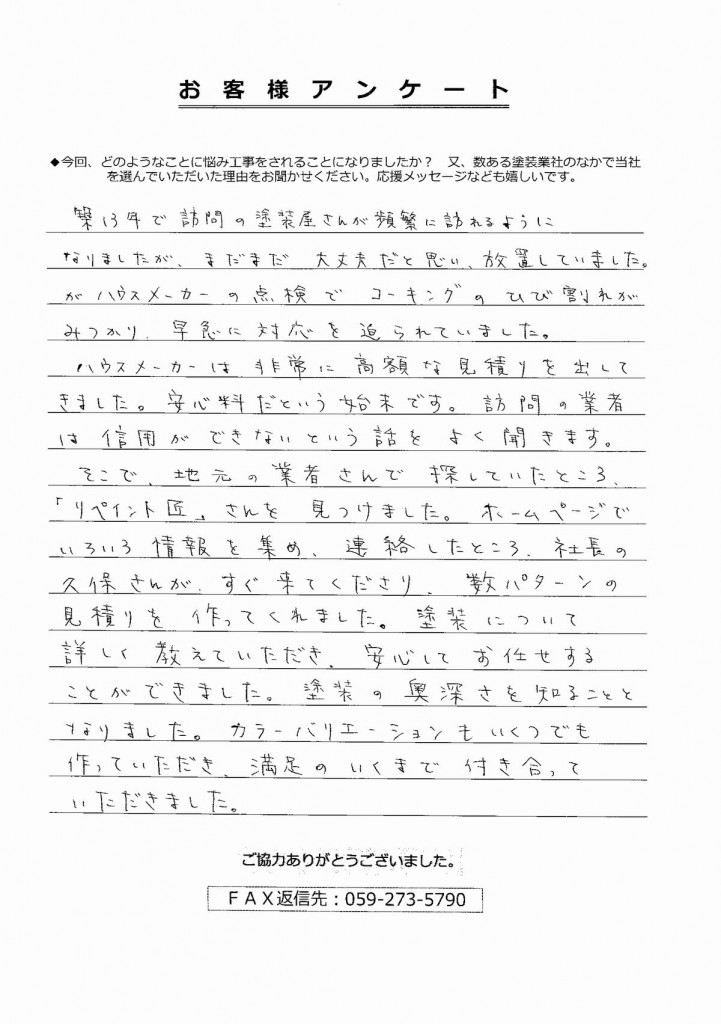 お客様アンケート
◆今回、どのようなことに悩み工事をされることになりましたか？　又、数ある塗装業社のなかで当社
を選んでいただいた理由をお聞かせください。応援メッセージなども嬉しいです。
築13年で訪問の塗装屋さんが頻繁に訪れるように
なりましたが、まだまだ 大丈夫だと思い、放置していました。
がハウスメーカーの点検で コーキングのひび割れが
みつかり、早急に対応を迫られていました。
ハウスメーカーは非常に高額な見積りを出して
きました。安心料だという始末です。訪問の業者
は信用ができないという話をよく聞きます。
そこで、地元の業者さんで探していたところ、
「リペイント匠」さんを見つけました。ホームページで
いろいろ情報を集め、連絡したところ、社長の
久保さんが、すぐ来てくださり、数パターンの
見積りを作ってくれました。塗装について
詳しく教えていただき、安心してお任せする
ことができました。塗装の奥深さを知ることと
なりました。カラーバリエーションもいくつでも
作っていただき、満足のいくまで付き合って
いただきました。
ご協力ありがとうございました。
ＦＡＸ返信先：059-273-5790